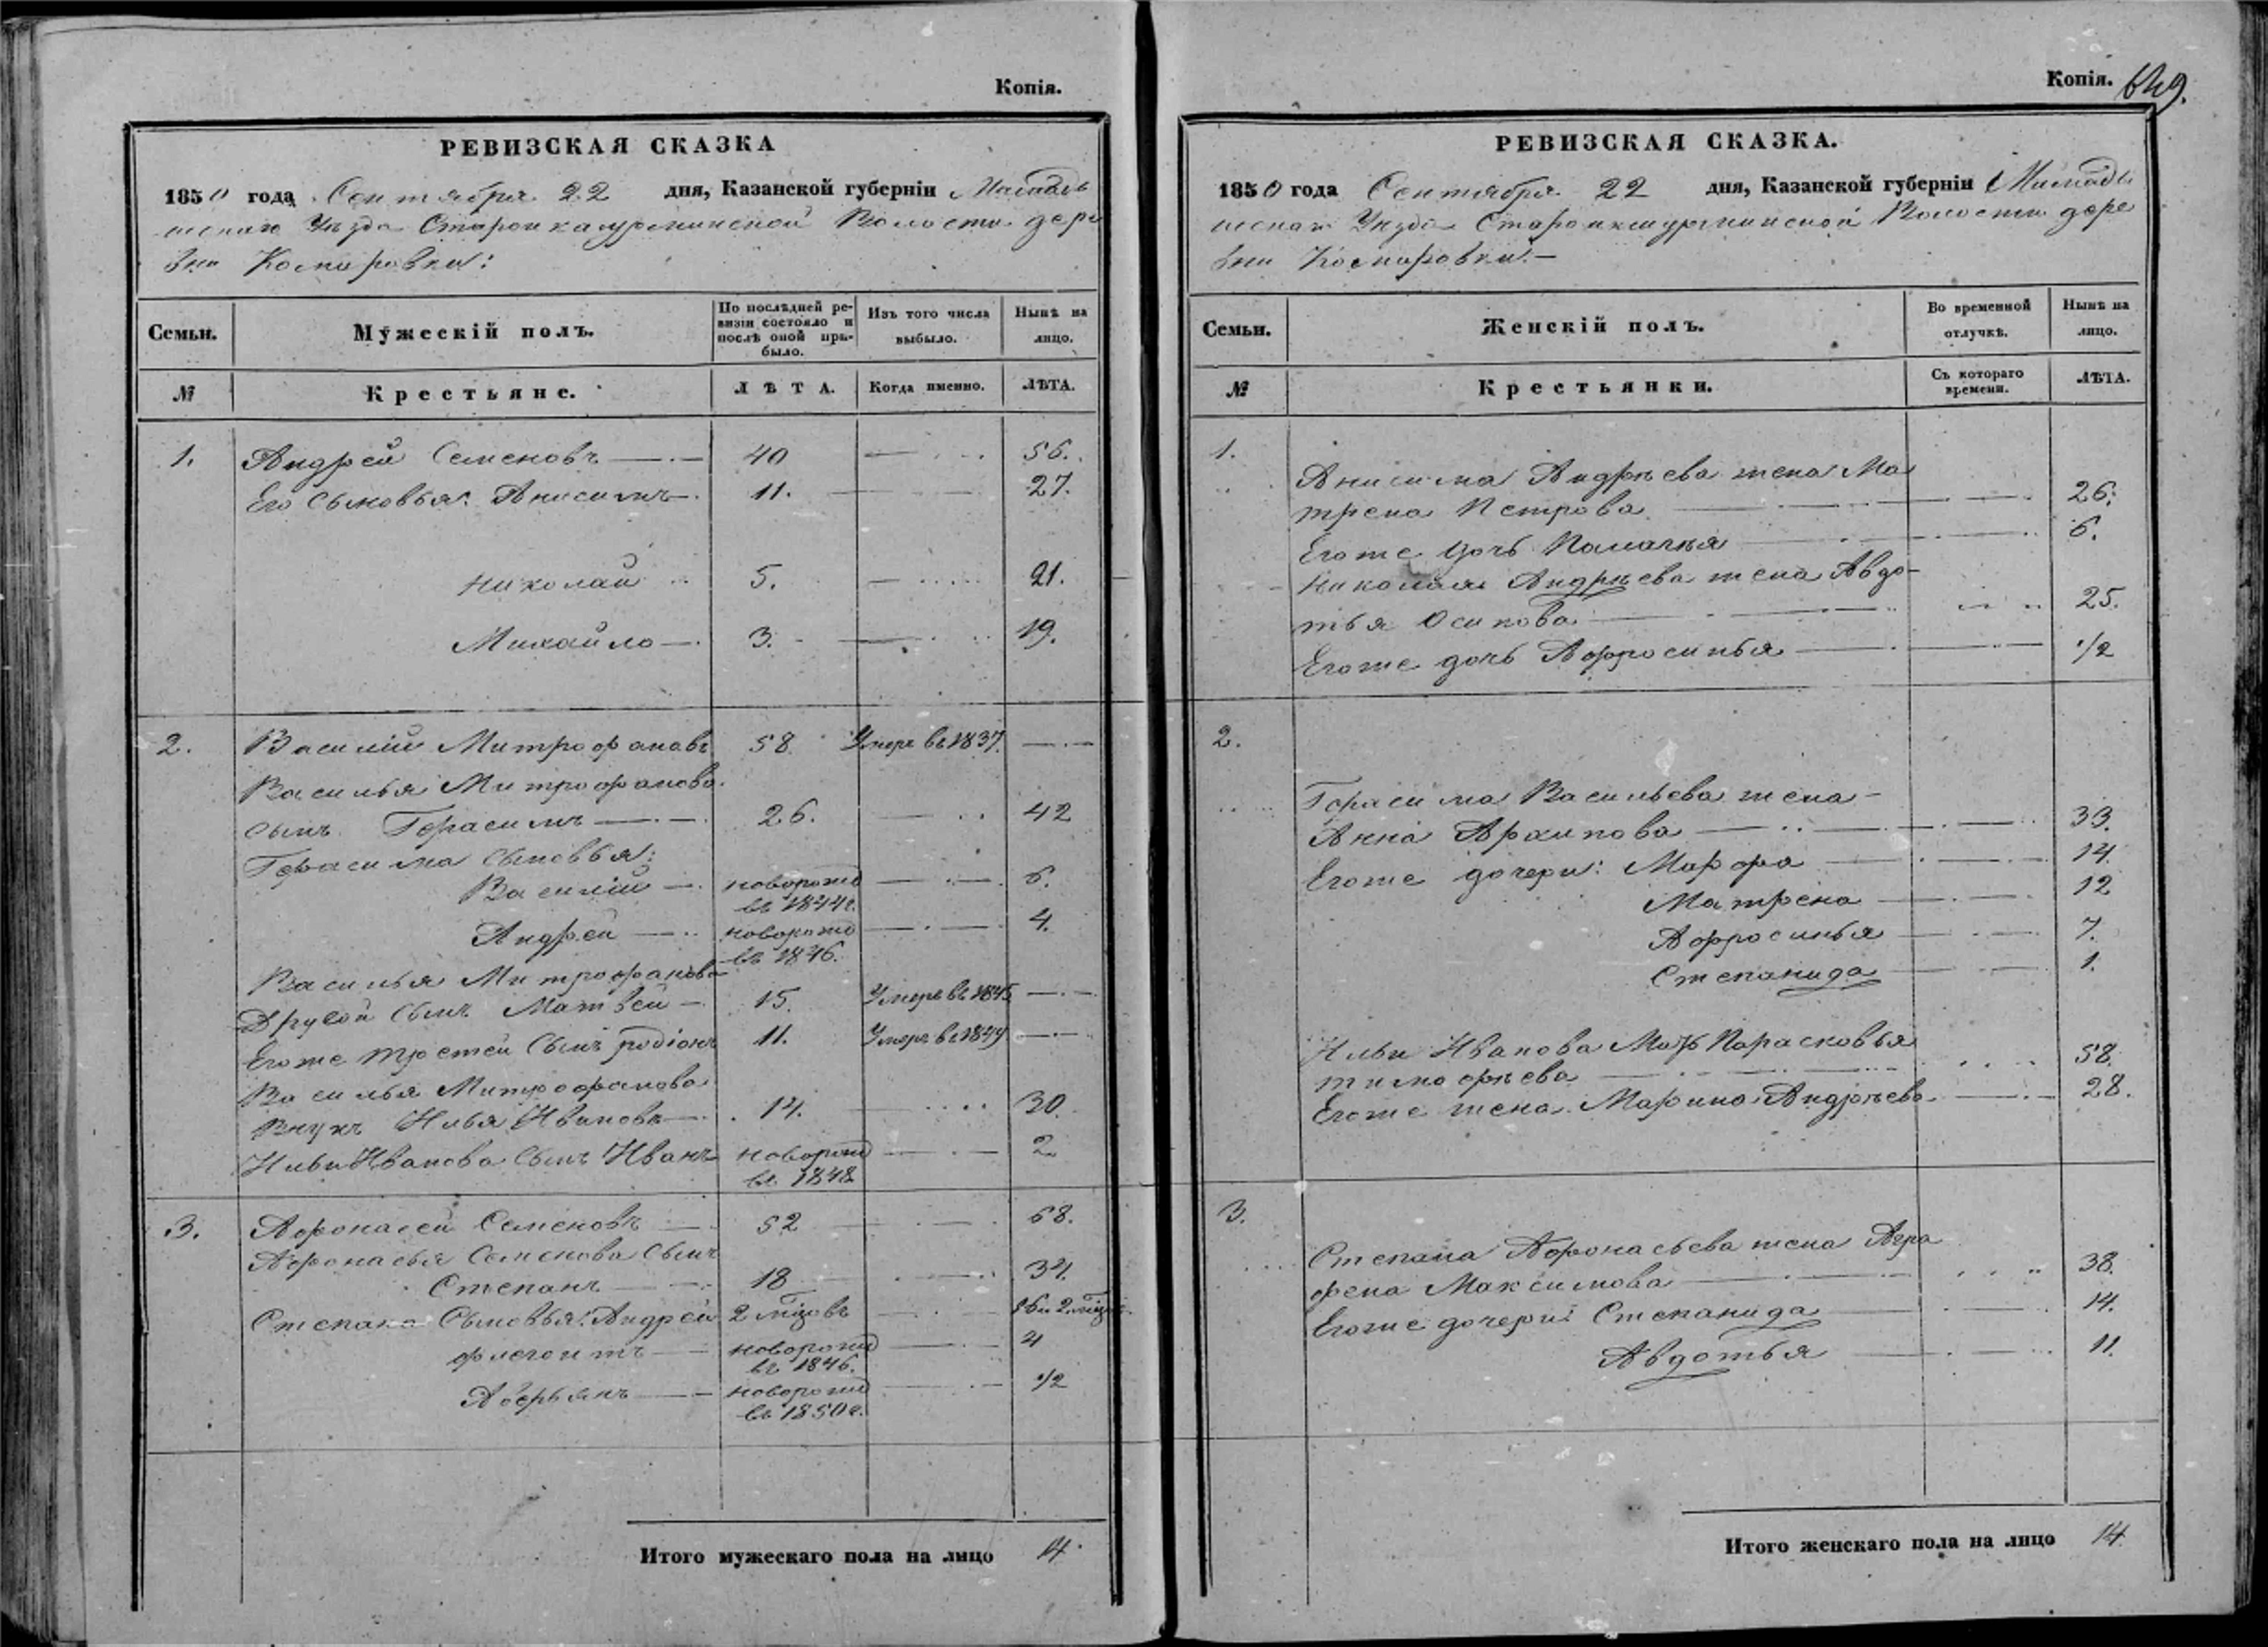 Копія.
РЕВИЗСКАЯ СКАЗКА
1850 года Сентября 22 дня, Казанской губерніи Мамады
шскаго Уѣзда Старо Волости дере
вни Комаровки:
Семьи. Мужескій полъ. По послѣдней ре-
визіи состояло и
послѣ оной при-
было. Изъ того числа
выбыло. Нынѣ на
лицо.
№ Крестьяне. ЛѢТА. Когда именно. ЛѢТА.
1. Андрей Семеновъ 40 56.
Его Сыновья: Анисимъ 11. 27.
Николай 5. 21.
Михайло 3. 19.
2. Василій Митрофановъ 58. Умеръ въ 1837.
Василья Митрофанова
сынъ Герасимъ 26. 42
Герасима сыновья:
Василій новорожд 6.
въ 1844 г.
Андрей новорожд 4.
въ 1846.
Василья Митрофанова
Другой сынъ Матвей 15. Умеръ въ 1845
Егоже третей Сынъ родіонъ 11. Умеръ въ 1849
Василья Митрофанова
Внукъ Илья Ивановъ 14. 30.
Ильи Иванова Сынъ Иванъ новорожд 2
въ 1848
3. Афонасей Семеновъ 52 68.
Афонасья Семенова Сынъ
Степанъ 18 34.
Степана Сыновья: Андрей 2 мѣсцовъ 16 и 2 мѣсц.
флегонтъ новорожд 4
въ 1846.
Аверьянъ новорожд 1/2
въ 1850 г.
Итого мужескаго пола на лицо 14.
Копія. 649.
РЕВИЗСКАЯ СКАЗКА.
1850 года Сентября 22 дня, Казанской губерніи Мамады
шскаго Уѣзда Старо Волости дере
вни Комаровки.
Семьи. Женскій полъ. Во временной
отлучкѣ. Нынѣ на
лицо.
№ Крестьянки. Съ котораго
времени. ЛѢТА.
1.
Анисима Андрѣева жена Ма
трена Петрова 26.
Егоже дочь Паладья 6.
Николая Андрѣева жена Авдо-
тья Осипова 25.
Егоже дочь Афросинья 1/2
2.
Герасима Васильева жена
Анна Архипова 33.
Егоже дочери: Марфа 14.
Матрена 12
Афросинья 7.
Степанида 1.
Ильи Иванова Мать Парасковья
тимофѣева 58.
Егоже жена Марина Андрѣева 28.
3.
Степана Афонасьева жена Агра
фена Максимова 38.
Егоже дочери: Степанида 14.
Авдотья 11.
Итого женскаго пола на лицо 14.